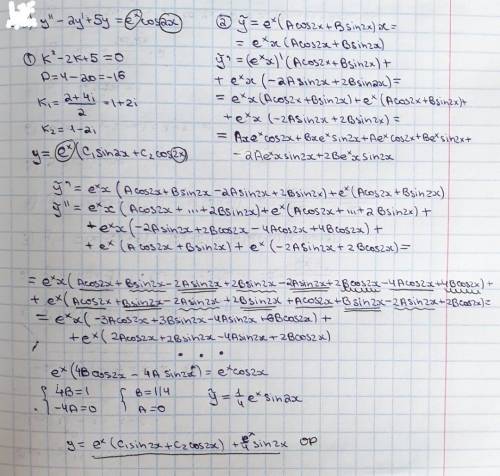 y'' - 2y' + 5y = eˣ cos2x
① k² - 2k + 5 = 0
D = 4 - 20 = -16
k₁ = (2+4i)/2 = 1+2i
k₂ = 1-2i
y = eˣ (C₁sin2x + C₂cos2x)
② ỹ = eˣ(Acos2x + Bsin2x)x =
= eˣx(Acos2x + Bsin2x)
ỹ' = (eˣx)'(Acos2x + Bsin2x) +
+ eˣx(-2Asin2x + 2Bsin2x) =
= eˣx(Acos2x + Bsin2x) + eˣ(Acos2x + Bsin2x) +
+ eˣx(-2Asin2x + 2Bsin2x) =
= Axeˣcos2x + Bxeˣsin2x + Aeˣcos2x + Beˣsin2x +
- 2Aeˣxsin2x + 2Beˣxsin2x
ỹ' = eˣx(Acos2x + Bsin2x - 2Asin2x + 2Bsin2x) + eˣ(Acos2x + Bsin2x)
ỹ'' = eˣx(Acos2x + ... + 2Bsin2x) + eˣ(Acos2x + ... + 2Bsin2x) +
+ eˣx(-2Asin2x + 2Bcos2x - 4Acos2x + 4Bcos2x) +
+ eˣ(Acos2x + Bsin2x) + eˣ(-2Asin2x + 2Bcos2x) =
= eˣx(Acos2x + Bsin2x - 2Asin2x + 2Bsin2x - 2Asin2x + 2Bcos2x - 4Acos2x + 4Bcos2x) +
+ eˣ(Acos2x + Bsin2x - 2Asin2x + 2Bsin2x + Acos2x + Bsin2x - 2Asin2x + 2Bcos2x) =
= eˣx(-3Acos2x + 3Bsin2x - 4Asin2x + 6Bcos2x) +
+ eˣ(2Acos2x + 2Bsin2x - 4Asin2x + 2Bcos2x)
...
eˣ(4Bcos2x - 4Asin2x) = eˣcos2x
{4B = 1 {B = 1/4 ỹ = ¼eˣsin2x
{-4A = 0 {A = 0
y = eˣ(C₁sin2x + C₂cos2x) + eˣ/4 sin2x OP